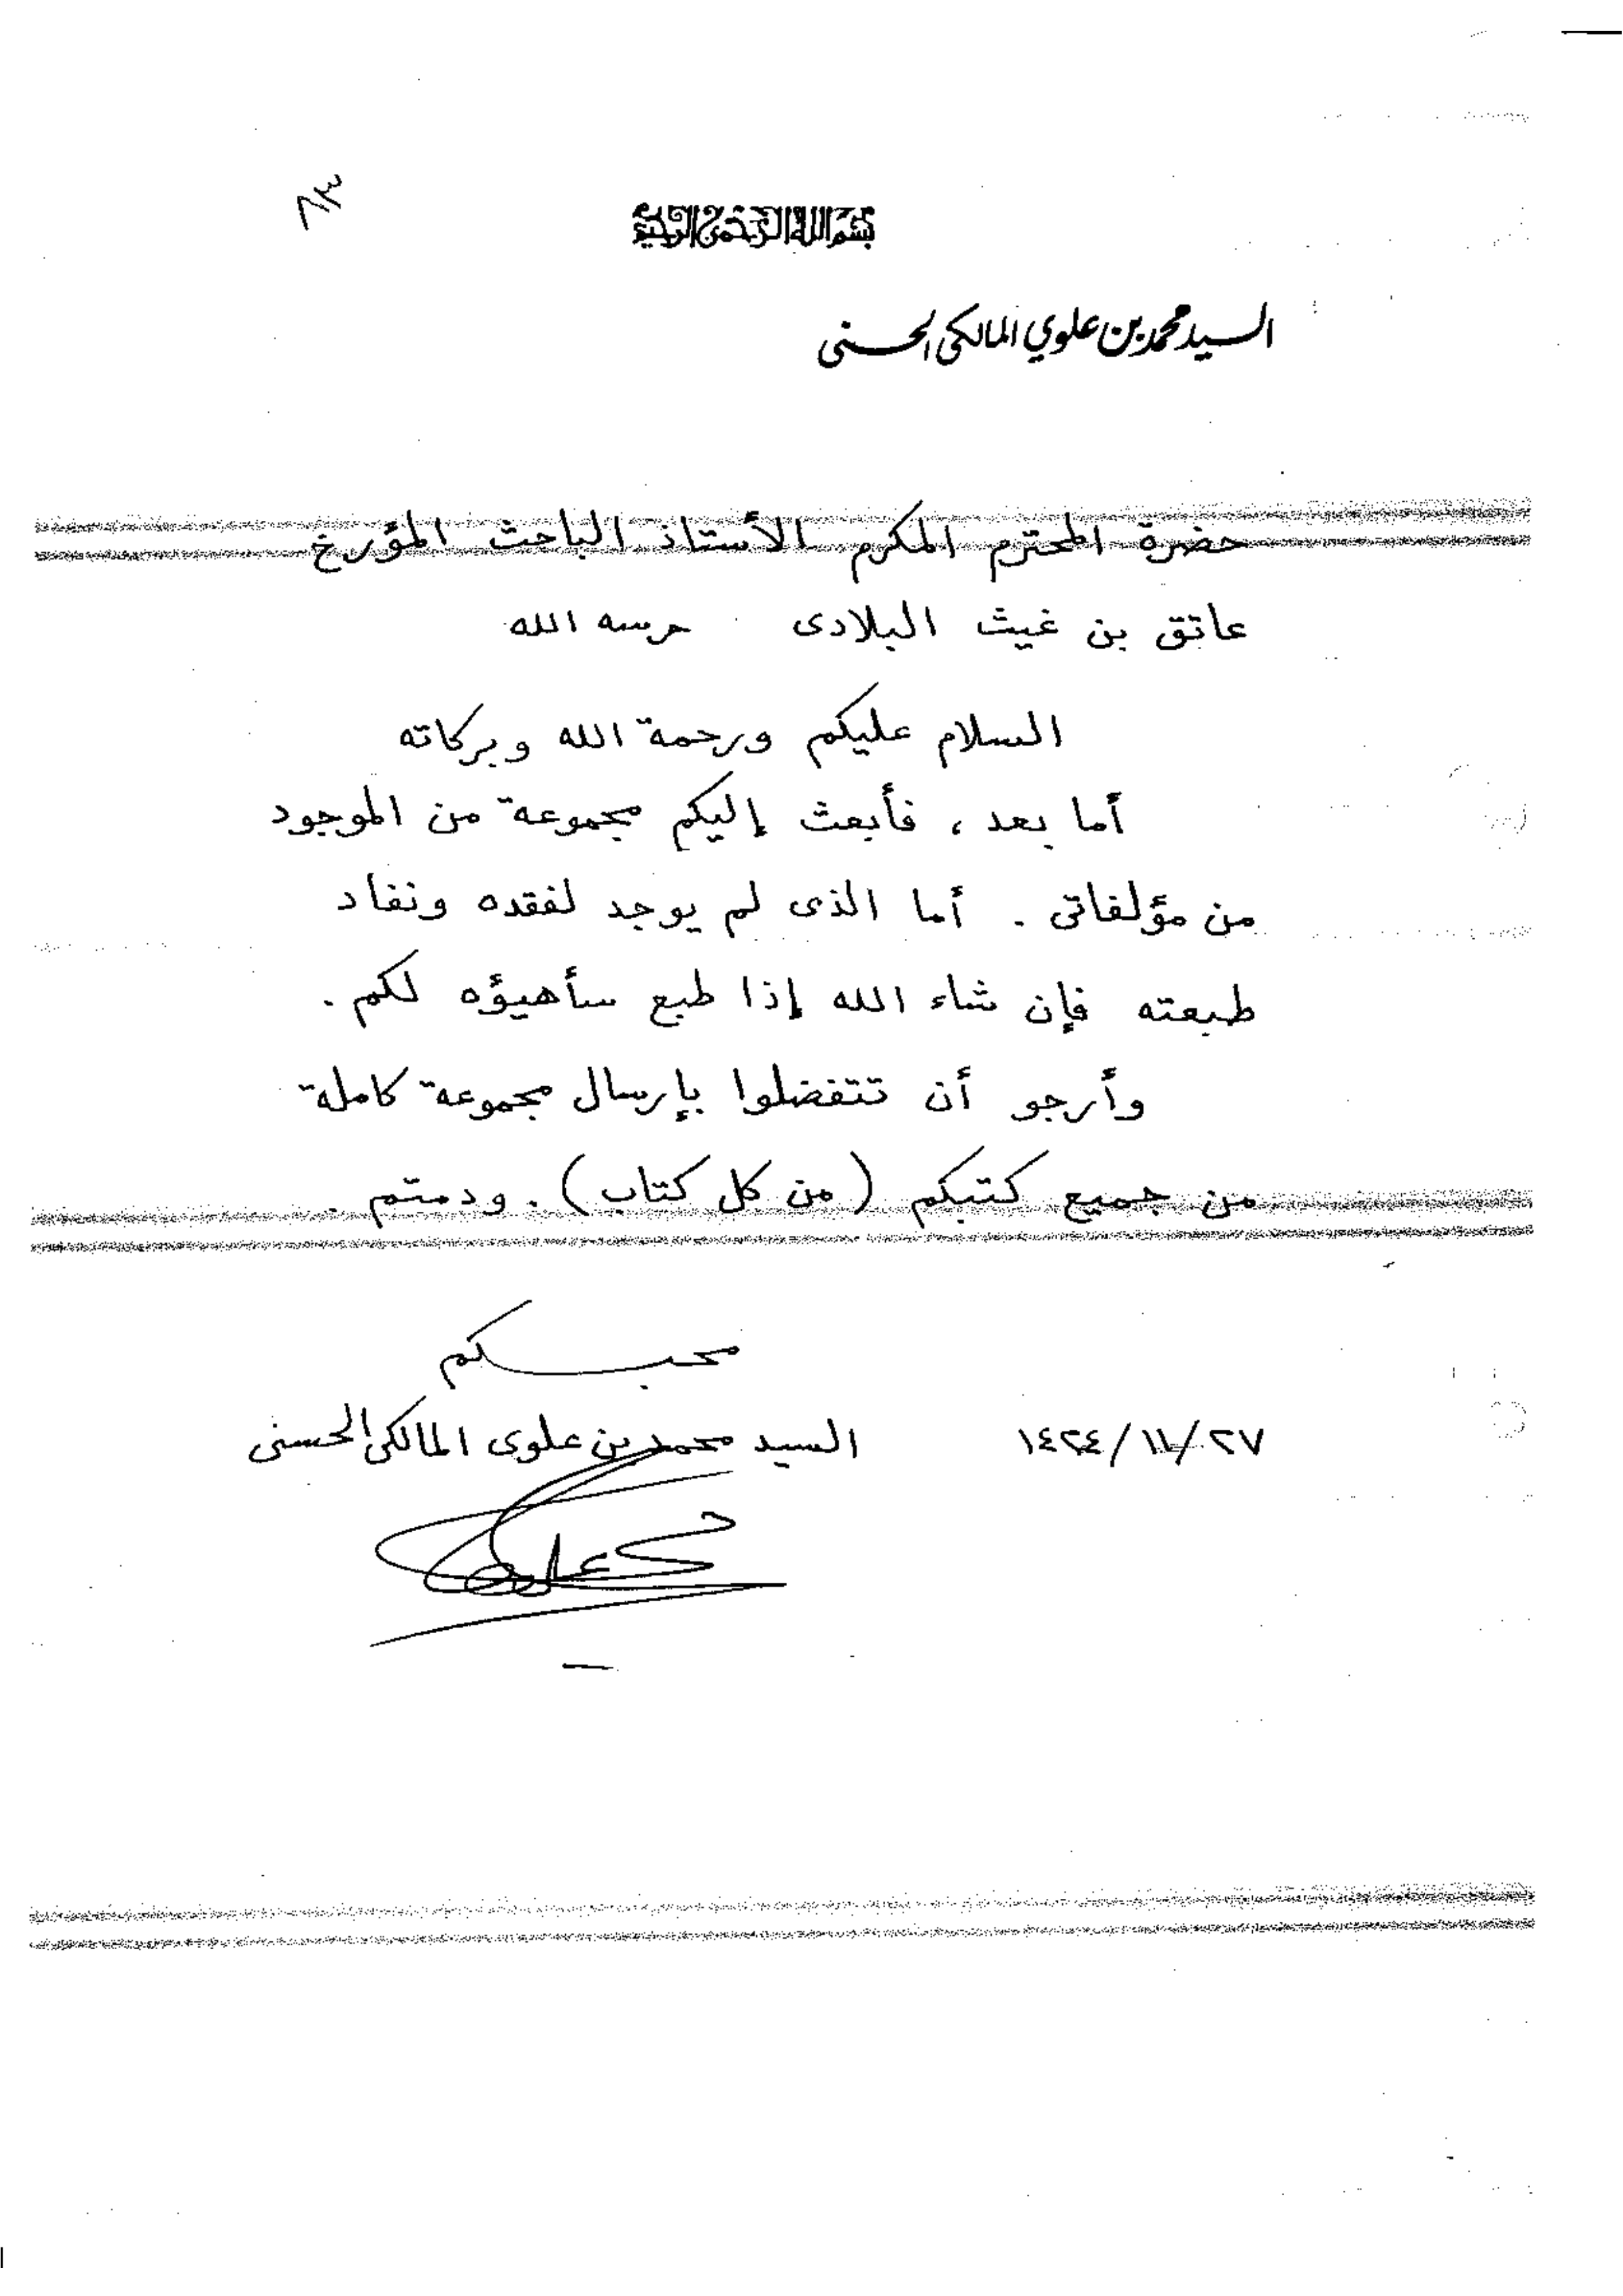 بسم الله الرحمن الرحيم
السيد محمد بن علوي المالكي الحسني
حضرة المحترم المكرم الأستاذ الباحث المؤرخ
عاتق بن غيث البلادى حرسه الله
السلام عليكم ورحمة الله وبركاته
أما بعد ، فأبعث إليكم مجموعة من الموجود
من مؤلفاتى . أما الذى لم يوجد لفقده ونفاد
طبعته فإن شاء الله إذا طبع سأهيؤه لكم .
وأرجو أن تتفضلوا بإرسال مجموعة كاملة
من جميع كتبكم (من كل كتاب) . ودمتم .
محبكم
السيد محمد بن علوى المالكى الحسنى
٢٧/١١/١٤٢٤